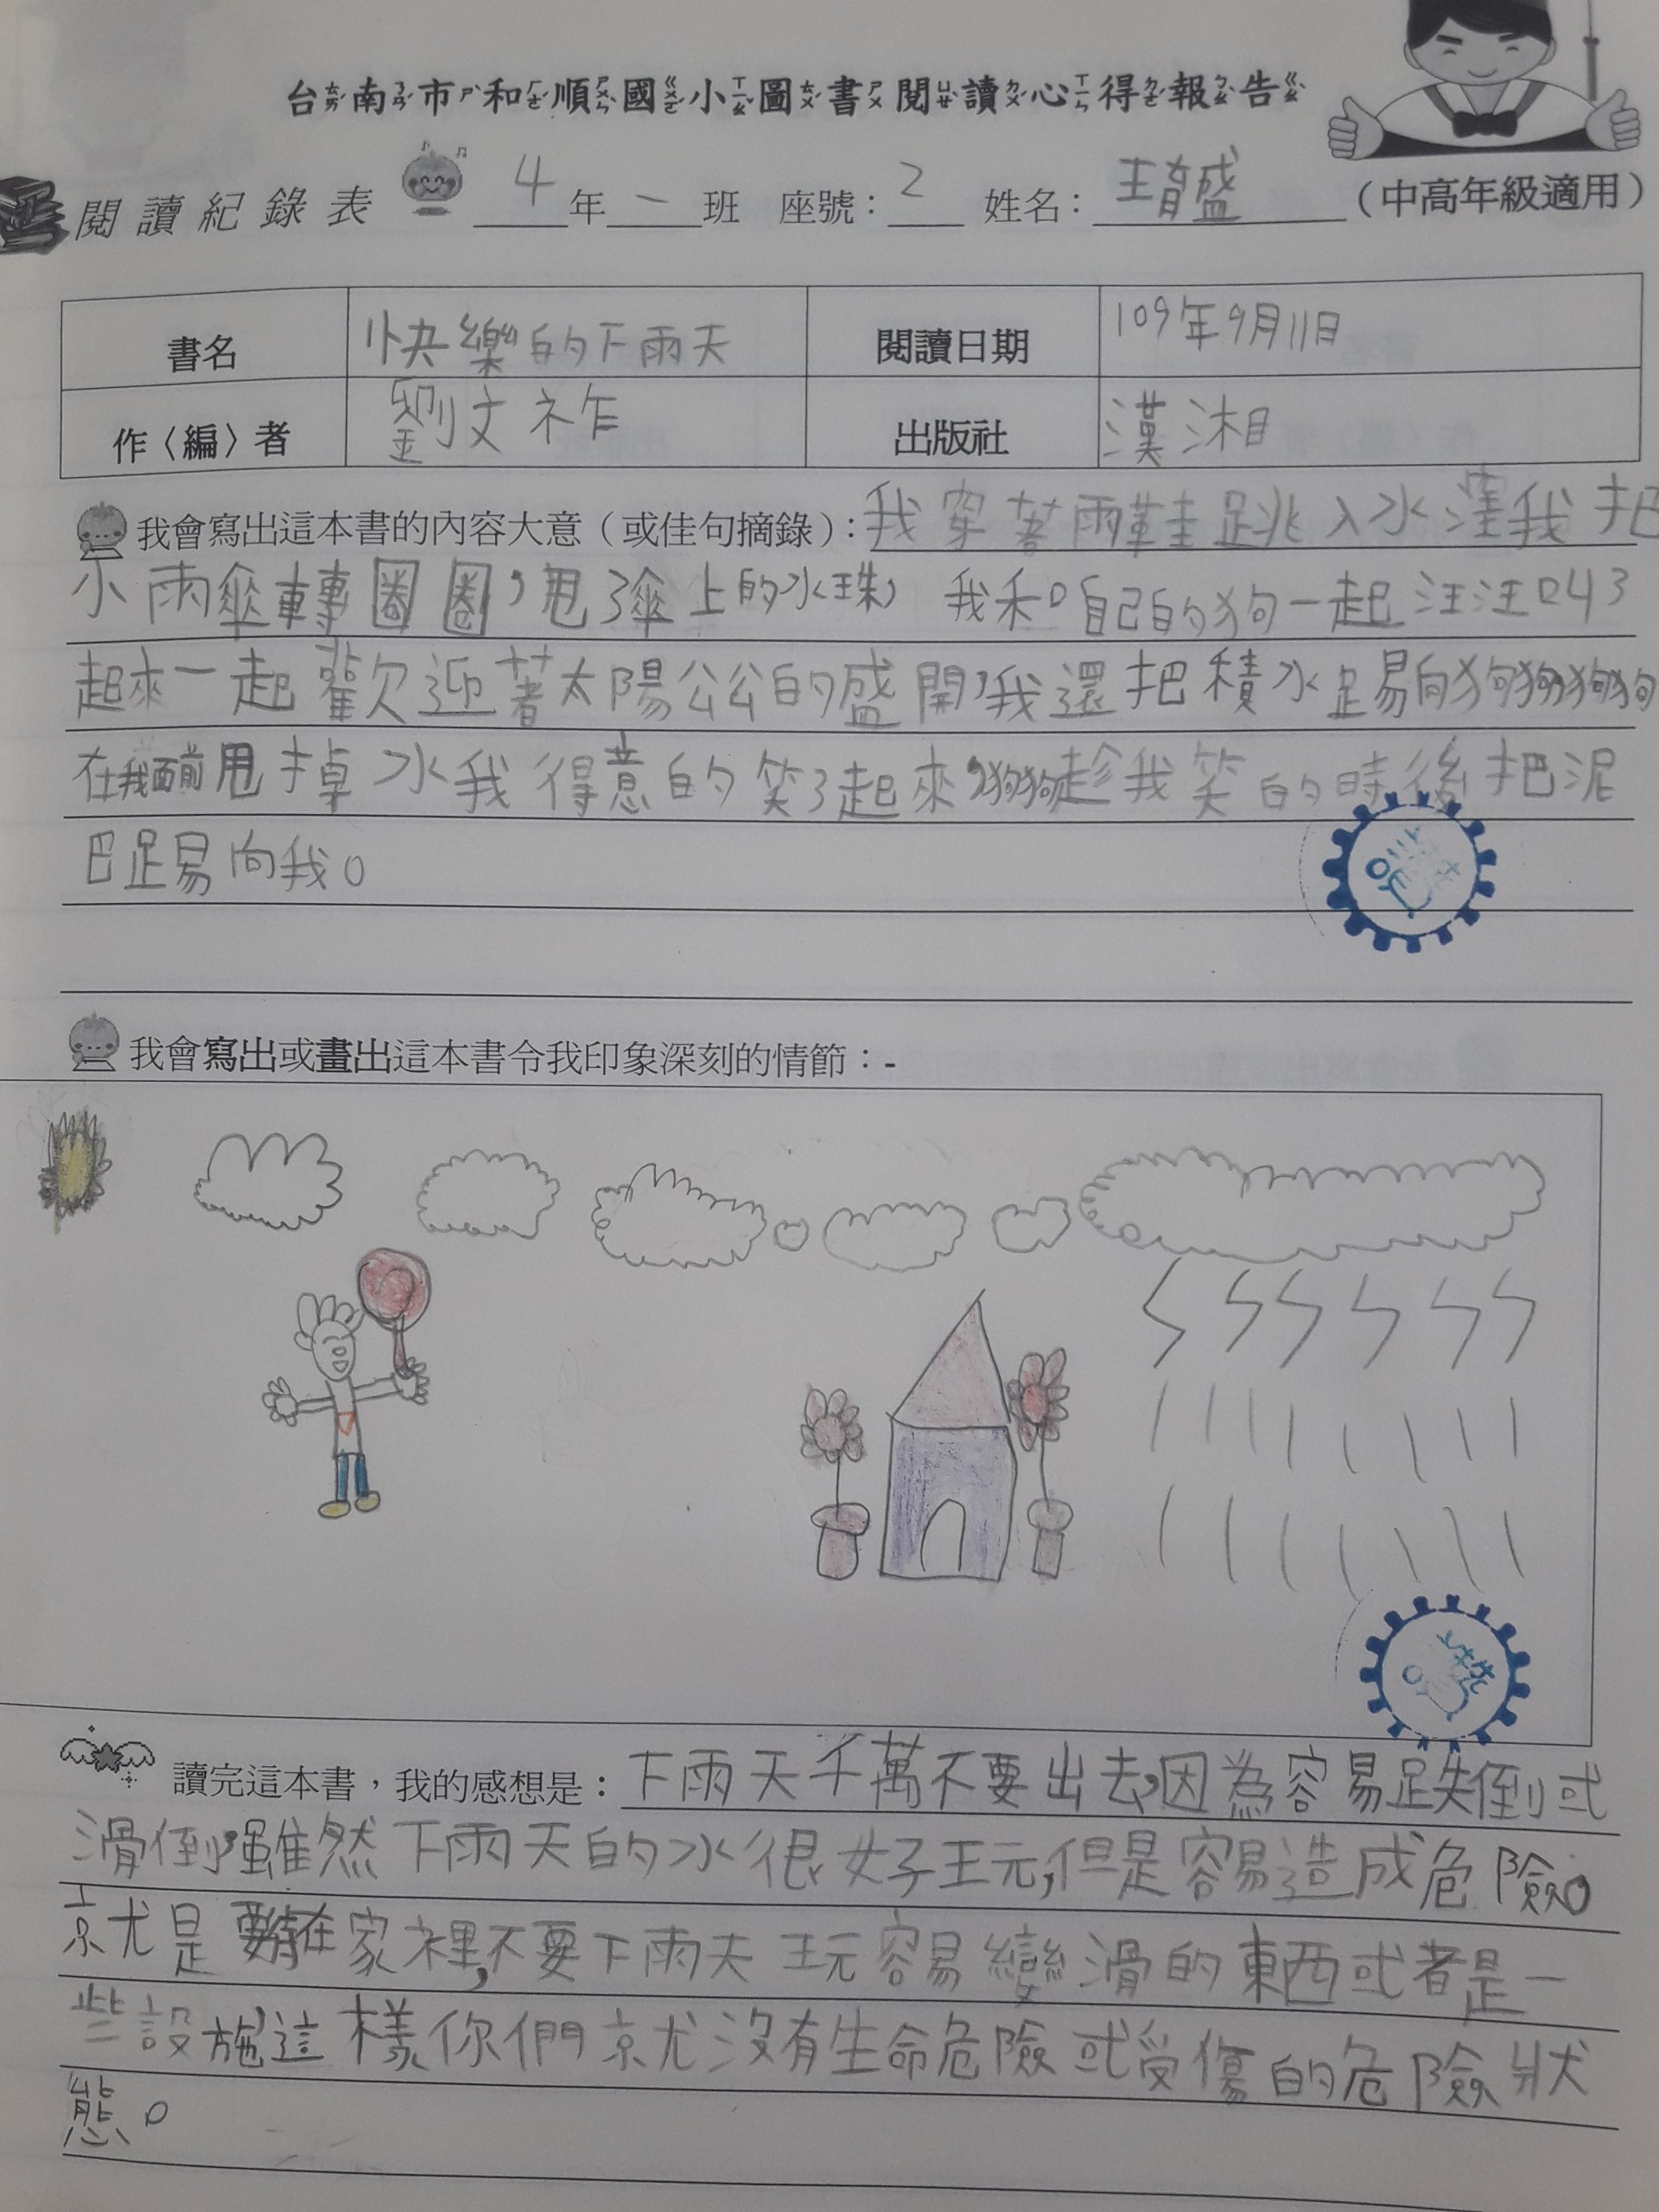 台南市和順國小圖書閱讀心得報告
閱讀紀錄表 4年一班 座號：2 姓名：王育盛（中高年級適用）
書名 快樂的下雨天 閱讀日期 109年9月11日
作〈編〉者 劉文祚 出版社 漢湘
我會寫出這本書的內容大意（或佳句摘錄）：我穿著雨鞋跳入水窪我把
小雨傘轉圈圈，甩了傘上的水珠，我和自己的狗一起汪汪叫
起來一起歡迎著太陽公公的盛開，我還把積水踢向狗狗狗狗
在我面前甩掉水我得意的笑了起來，狗狗趁我笑的時後把泥
巴踢向我。
我會寫出或畫出這本書令我印象深刻的情節：-
讀完這本書，我的感想是：下雨天千萬不要出去，因為容易跌倒或
滑倒，雖然下雨天的水很好玩，但是容易造成危險。
就是要待在家裡，不要下雨天玩容易變滑的東西或者是一
些設施，這樣你們就沒有生命危險或受傷的危險狀
態。